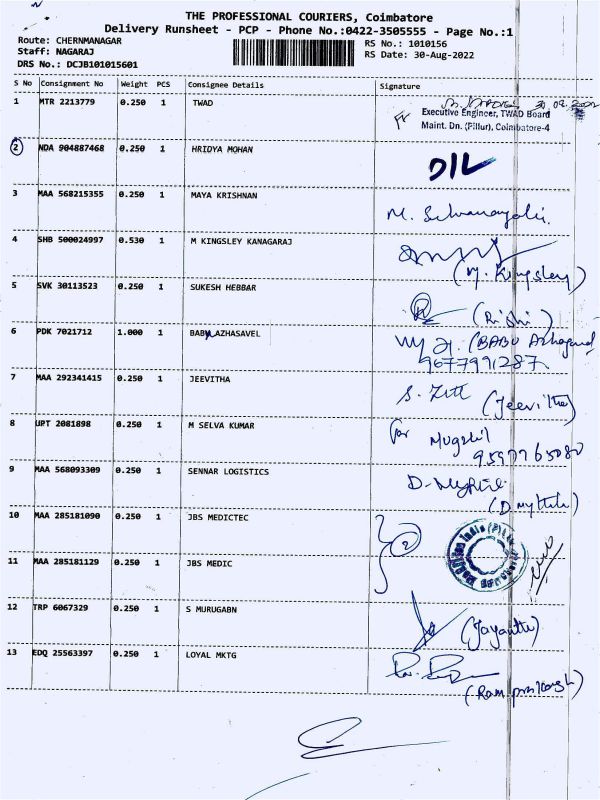 THE PROFESSIONAL COURIERS, Coimbatore
Delivery Runsheet - PCP - Phone No.:0422-3505555 - Page No.:1
Route: CHERNMANAGAR
RS No.: 1010156
Staff: NAGARAJ
RS Date: 30-Aug-2022
DRS No.: DCJB101015601
S No Consignment No Weight PCS Consignee Details Signature
1 MTR 2213779 0.250 1 TWAD
Executive Engineer, TWAD Board
Maint. Dn. (Pillur), Coimbatore-4
2 NDA 904887468 0.250 1 HRIDYA MOHAN
3 MAA 568215355 0.250 1 MAYA KRISHNAN
4 SHB 500024997 0.530 1 M KINGSLEY KANAGARAJ
(M. Kingsley)
5 SVK 30113523 0.250 1 SUKESH HEBBAR
(Rishi)
6 PDK 7021712 1.000 1 BABU AZHASAVEL
9677991287
7 MAA 292341415 0.250 1 JEEVITHA
(Jeevitha)
8 UPT 2081898 0.250 1 M SELVA KUMAR
for Mugzhil
9597765080
9 MAA 568093309 0.250 1 SENNAR LOGISTICS
10 MAA 285181090 0.250 1 JBS MEDICTEC
2
11 MAA 285181129 0.250 1 JBS MEDIC
12 TRP 6067329 0.250 1 S MURUGABN
(Jayanthi)
13 EDQ 25563397 0.250 1 LOYAL MKTG
(Ram prakash)